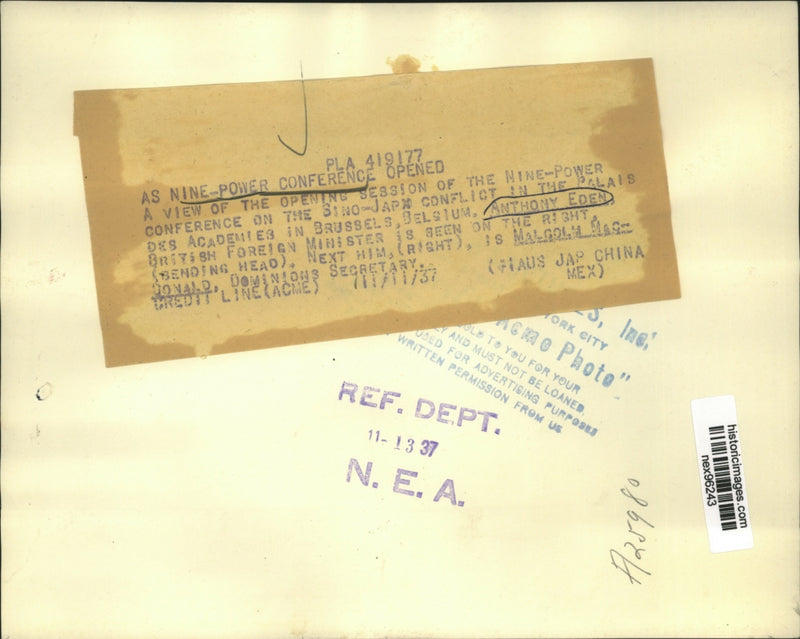 PLA 419177
AS NINE-POWER CONFERENCE OPENED
A VIEW OF THE OPENING SESSION OF THE NINE-POWER
CONFERENCE ON THE SINO-JAPX CONFLICT IN THE PALAIS
DES ACADEMIES IN BRUSSELS, BELGIUM. ANTHONY EDEN
BRITISH FOREIGN MINISTER IS SEEN ON THE RIGHT,
(BENDING HEAD). NEXT HIM, (RIGHT), IS MALCOLM MAC-
DONALD, DOMINIONS SECRETARY.
CREDIT LINE (ACME) (11/11/37 AUS JAP CHINA
MEX)
ES, Inc.
YORK CITY
"Acme Photo"
OLD TO YOU FOR YOUR
LY AND MUST NOT BE LOANED,
USED FOR ADVERTISING PURPOSES
WRITTEN PERMISSION FROM US
REF. DEPT.
11-13 37
N. E. A.
historicimages.com
nex96243